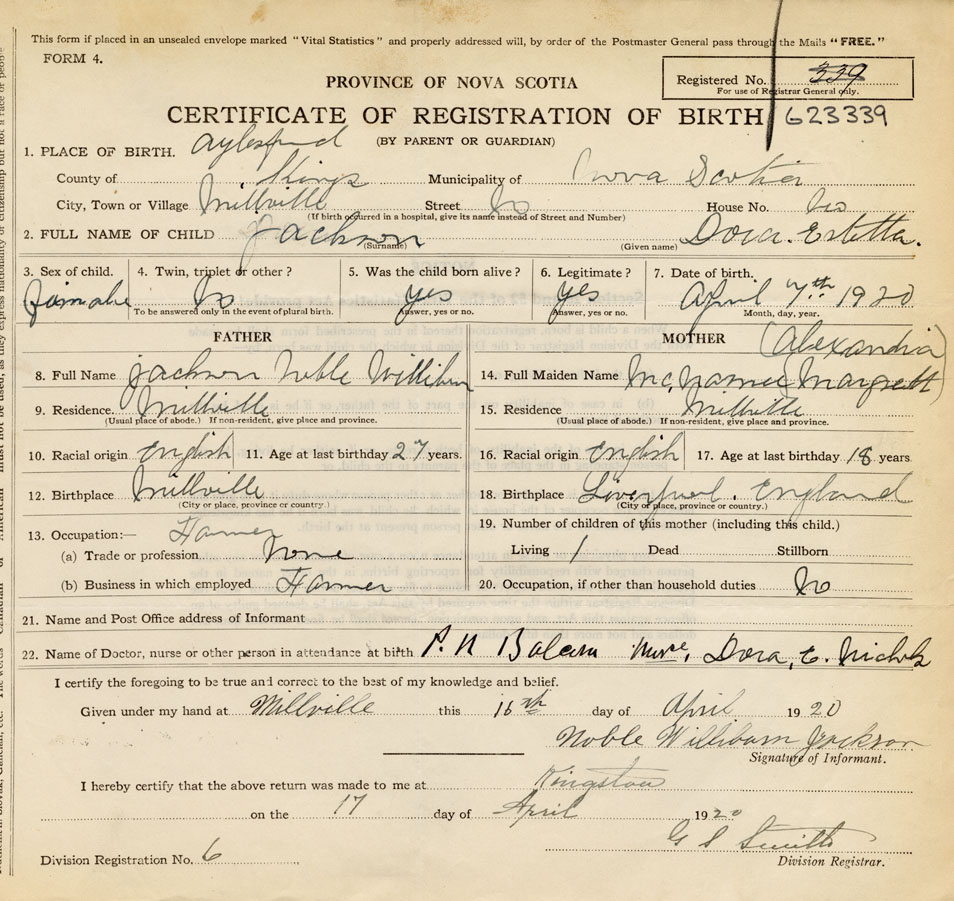 This form if placed in an unsealed envelope marked "Vital Statistics" and properly addressed will, by order of the Postmaster General pass through the Mails "FREE."
FORM 4.
PROVINCE OF NOVA SCOTIA
Registered No. 339
For use of Registrar General only.
CERTIFICATE OF REGISTRATION OF BIRTH 623339
(BY PARENT OR GUARDIAN)
1. PLACE OF BIRTH. Aylesford
County of Kings Municipality of Nova Scotia
City, Town or Village Millville Street No House No. No
(If birth occurred in a hospital, give its name instead of Street and Number)
2. FULL NAME OF CHILD Jackson Dora. Estetta.
(Surname) (Given name)
3. Sex of child. 4. Twin, triplet or other? 5. Was the child born alive? 6. Legitimate? 7. Date of birth.
Famale No yes yes April 7th 1920
To be answered only in the event of plural birth. Answer, yes or no. Answer, yes or no. Month, day, year.
FATHER MOTHER (Alexandria)
8. Full Name Jackson Noble Williburn 14. Full Maiden Name McNamer Margrett
9. Residence. Millville 15. Residence Millville
(Usual place of abode.) If non-resident, give place and province. (Usual place of abode.) If non-resident, give place and province.
10. Racial origin English 11. Age at last birthday 27 years. 16. Racial origin English 17. Age at last birthday 18 years.
12. Birthplace Millville 18. Birthplace Liverpuol. England
(City or place, province or country.) (City or place, province or country.)
13. Occupation:— Farmer 19. Number of children of this mother (including this child.)
(a) Trade or profession None Living 1 Dead Stillborn
(b) Business in which employed Farmer 20. Occupation, if other than household duties No
21. Name and Post Office address of Informant
22. Name of Doctor, nurse or other person in attendance at birth P. N Balcom Nurse, Dora, E. Nichols
I certify the foregoing to be true and correct to the best of my knowledge and belief.
Given under my hand at Millville this 16th day of April 1920
Noble Williburn Jackson
Signature of Informant.
I hereby certify that the above return was made to me at Kingston
on the 17 day of April 1920
G S Smith
Division Registration No. 6 Division Registrar.